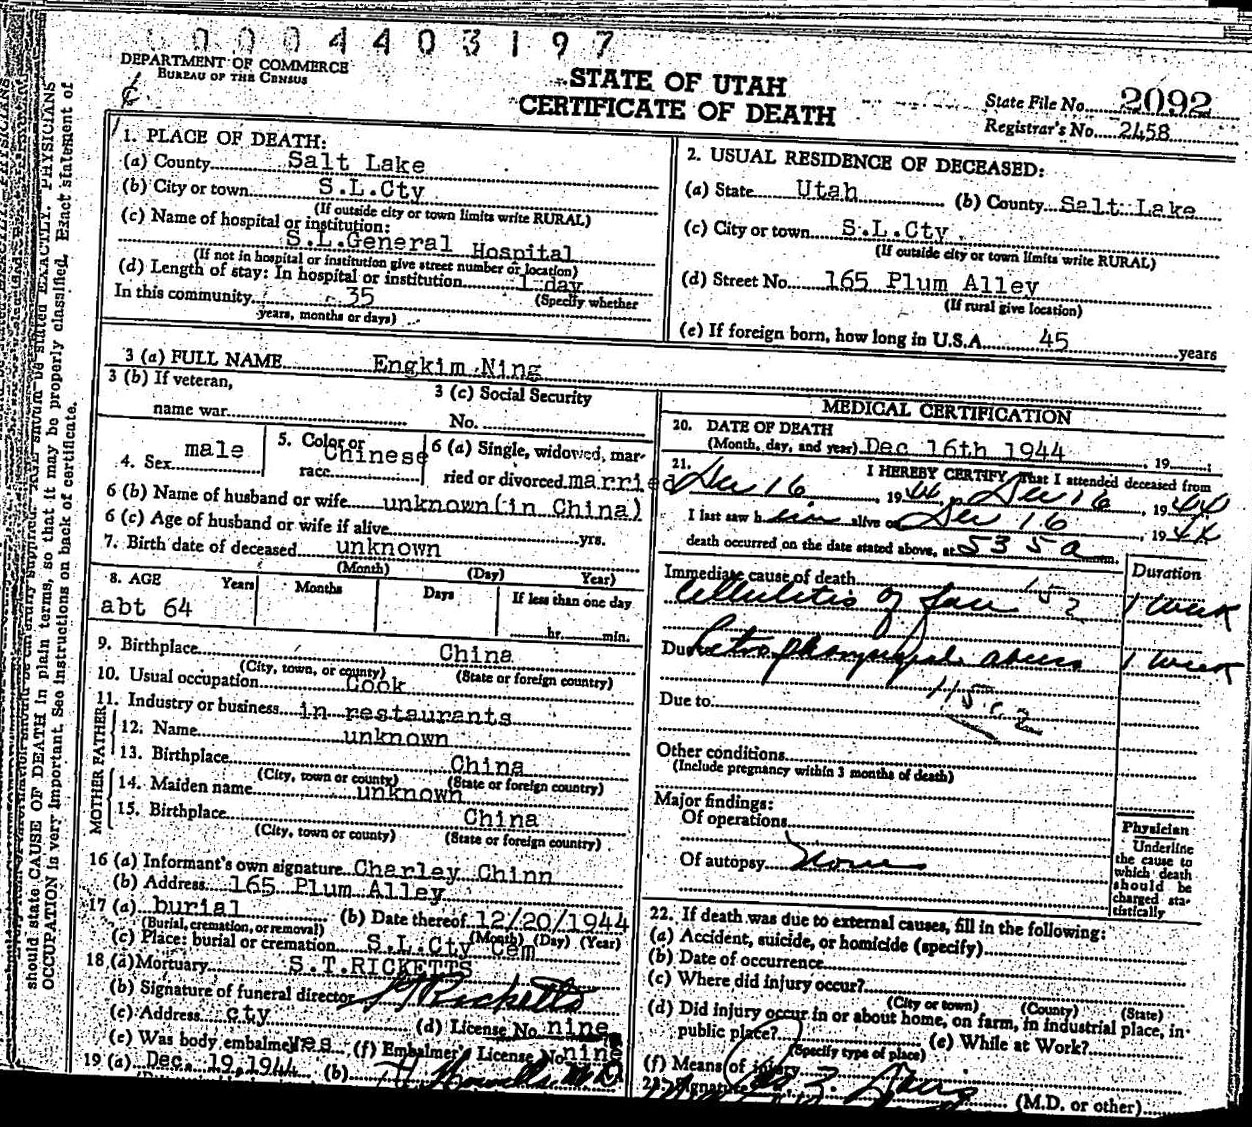 0004403197
DEPARTMENT OF COMMERCE
BUREAU OF THE CENSUS
STATE OF UTAH
CERTIFICATE OF DEATH
State File No. 2092
Registrar's No. 2458
1. PLACE OF DEATH:
(a) County Salt Lake
(b) City or town S.L.Cty
(If outside city or town limits write RURAL)
(c) Name of hospital or institution:
S.L.General Hospital
(If not in hospital or institution give street number or location)
(d) Length of stay: In hospital or institution 1 day
(Specify whether
In this community 35
years, months or days)
2. USUAL RESIDENCE OF DECEASED:
(a) State Utah (b) County Salt Lake
(c) City or town S.L.Cty.
(If outside city or town limits write RURAL)
(d) Street No. 165 Plum Alley
(If rural give location)
(e) If foreign born, how long in U.S.A. 45 years
3 (a) FULL NAME Engkim Ning
3 (b) If veteran,
name war
3 (c) Social Security
No.
4. Sex male
5. Color or
race Chinese
6 (a) Single, widowed, mar-
ried or divorced married
6 (b) Name of husband or wife unknown(in China)
6 (c) Age of husband or wife if alive yrs.
7. Birth date of deceased unknown
(Month) (Day) Year)
8. AGE Years Months Days If less than one day
abt 64
hr. min.
9. Birthplace China
(City, town, or county) (State or foreign country)
10. Usual occupation Cook
11. Industry or business in restaurants
FATHER
12. Name unknown
13. Birthplace China
(City, town or county) (State or foreign country)
MOTHER
14. Maiden name unknown
15. Birthplace China
(City, town or county) (State or foreign country)
16 (a) Informant's own signature Charley Chinn
(b) Address 165 Plum Alley
17 (a) burial (b) Date thereof 12/20/1944
(Burial, cremation, or removal) (Month) (Day) (Year)
(c) Place: burial or cremation S.L.Cty Cem
18 (a) Mortuary S.T.RICKETTS
(b) Signature of funeral director Ricketts
(c) Address cty (d) License No. nine
(e) Was body embalmed yes (f) Embalmer's License No. nin
19 (a) Dec. 19,1944 (b)
MEDICAL CERTIFICATION
20. DATE OF DEATH
(Month, day, and year) Dec 16th 1944, 19
21. I HEREBY CERTIFY, That I attended deceased from
Dec 16, 1944, to Dec 16, 1944
I last saw him alive on Dec 16, 1944
death occurred on the date stated above, at 535a m.
Duration
Immediate cause of death
Cellulitis of face 1 week
Due to Retropharyngeal abscess 1 week
115.2
Due to
Other conditions
(Include pregnancy within 3 months of death)
Major findings:
Of operations
Of autopsy None
Physician
Underline
the cause to
which death
should be
charged sta-
tistically
22. If death was due to external causes, fill in the following:
(a) Accident, suicide, or homicide (specify)
(b) Date of occurrence
(c) Where did injury occur?
(City or town) (County) (State)
(d) Did injury occur in or about home, on farm, in industrial place, in
public place? (e) While at Work?
(Specify type of place)
(f) Means of injury
Signature
(M.D. or other)
should state CAUSE OF DEATH in plain terms, so that it may be properly classified. Exact statement of
OCCUPATION is very important. See instructions on back of certificate.